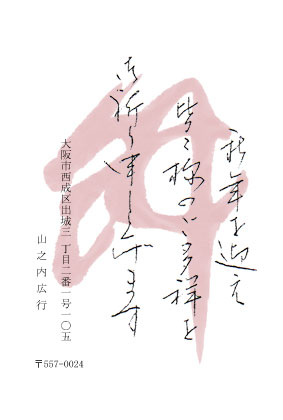 新年を迎え
皆々様のご多祥を
お祈り申し上げます
大阪市西成区出城三丁目二番一号一〇五
山之内広行
〒557-0024